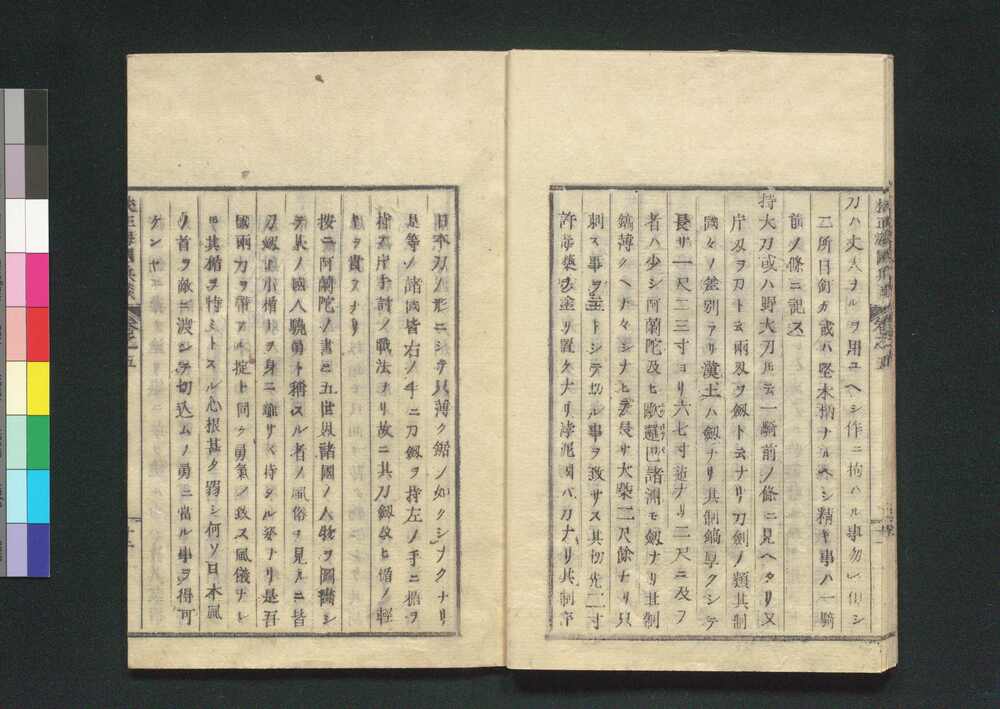 刀ハ丈夫ナルヲ用ユヘシ作ニ拘ハル事勿レ但シ
二所目釘カ或ハ堅木柄ナルヘシ精キ事ハ一騎
前ノ條ニ記ス
持大刀或ハ野大刀氏云一騎前ノ條ニ見ヘタリ又
片刃ヲ刀ト云兩刃ヲ劔ト云ナリ刀劍ノ類其制
國々ノ差別アリ漢土ハ劔ナリ其制鎬厚クシテ
長サ一尺二三寸ヨリ六七寸迄ナリ二尺ニ及フ
者ハ少シ阿蘭陀及ヒ歐羅巴諸洲モ劔ナリ其制
鎬薄クヘナ々シナヒ長サ大槩二尺餘ナリ只
刺ス事ヲ主トシテ切ル事ヲ致サス其切先二寸
許毒藥ヲ塗リ置クナリ浡泥國ハ刀ナリ其制
日本刀ノ形ニシテ只薄ク鋸ノ如クシナクナリ
是等ノ諸國皆右ノ手ニ刀劔ヲ持左ノ手ニ楯ヲ
持ス片手討ノ戰法ナリ故ニ其刀劔及ヒ楯ノ輕
キヲ貴スナリ
按ニ阿蘭陀ノ書ニ五世界諸國ノ人物ヲ圖シ
テ其ノ國人驍勇ト稱スル者ノ風俗ヲ見ルニ皆
刀劔ト小楯トヲ身ニ離サス持タル姿ナリ是吾
國兩刀ヲ帶スル掟ト同ク勇氣ノ致ス風儀ナレ
𪜈其楯ヲ特ミトスル心根甚タ弱シ何ソ日本風
ノ首ヲ敵ニ渡シテ切込ムノ勇ニ當ル事ヲ得可
ケンヤ